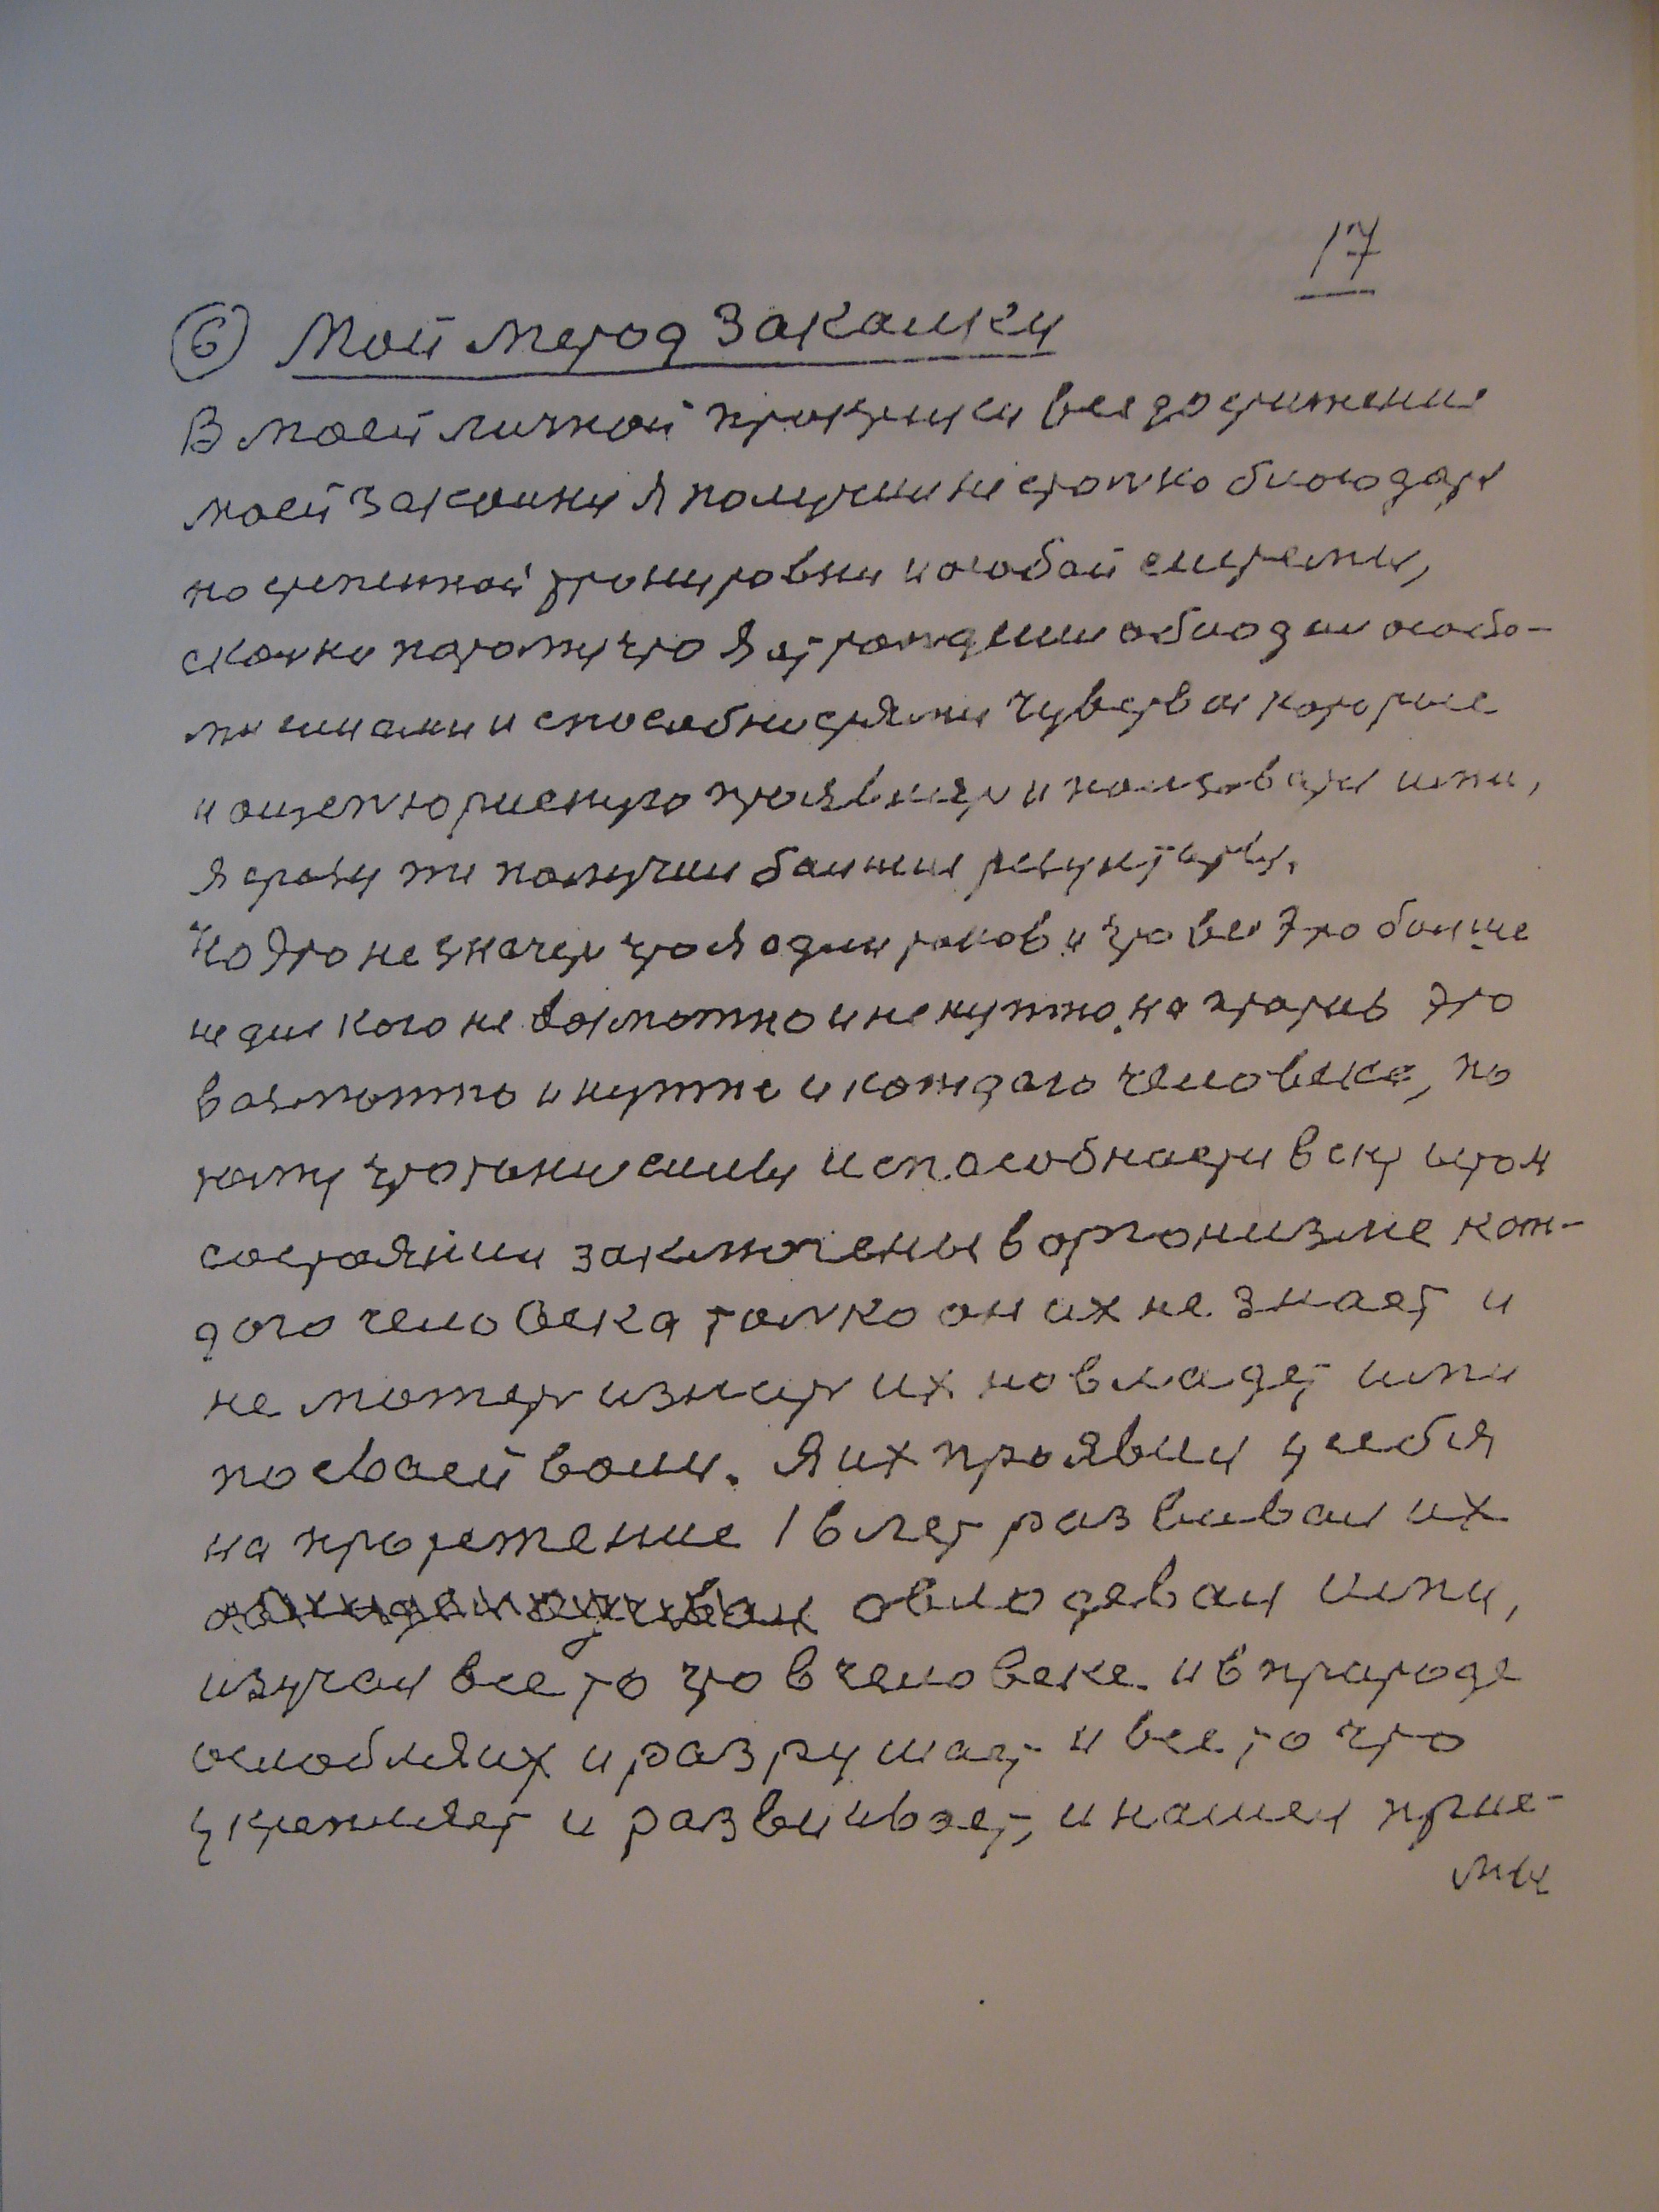 17
6 Мой метод закалки
В моей личной практики все достижение
моей закалки я получил не столко благодаря
постепенной тренировки и особой системы,
сколки потому что я от рождении обладал особы-
ми силами и способностями чувства которые
и проявить и ползоваться ими,
я сразу же получил болшие резултаты.
Но это не значит что я один таков и что все это болше
не для кого не возможно и не нужно, на против это
возможно и нужно и каждого человека, по
тому что такие силы и способности в скрытом
состоянии заключены в организме каж-
дого человека толко он их не знает и
не может их но владет ими
по своей воли. Я их проявил у себя
на протежение 16 лет развивал их
овладевал ими,
изучал все то что в человеке и в природе
ослабляих и разрушает и все то что
укрепляет и развиивает, и нашел прие-
мы